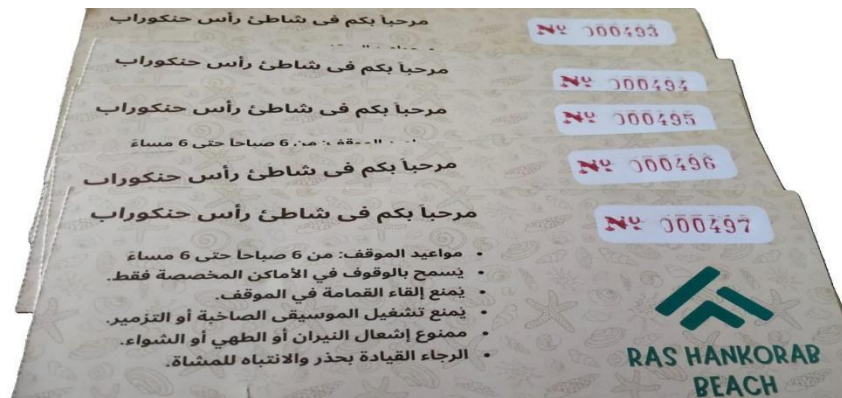 مرحباً بكم فى شاطئ رأس حنكوراب
Nº 000493
مرحباً بكم فى شاطئ رأس حنكوراب
Nº 000494
مرحباً بكم فى شاطئ رأس حنكوراب
Nº 000495
6 صباحاً حتى 6 مساءً
مرحباً بكم فى شاطئ رأس حنكوراب
Nº 000496
مرحباً بكم فى شاطئ رأس حنكوراب
Nº 000497
• مواعيد الموقف: من 6 صباحاً حتى 6 مساءً
• يُسمح بالوقوف في الأماكن المخصصة فقط.
• يُمنع إلقاء القمامة في الموقف.
• يُمنع تشغيل الموسيقى الصاخبة أو التزمير.
• ممنوع إشعال النيران أو الطهي أو الشواء.
• الرجاء القيادة بحذر والانتباه للمشاة.
RAS HANKORAB
BEACH